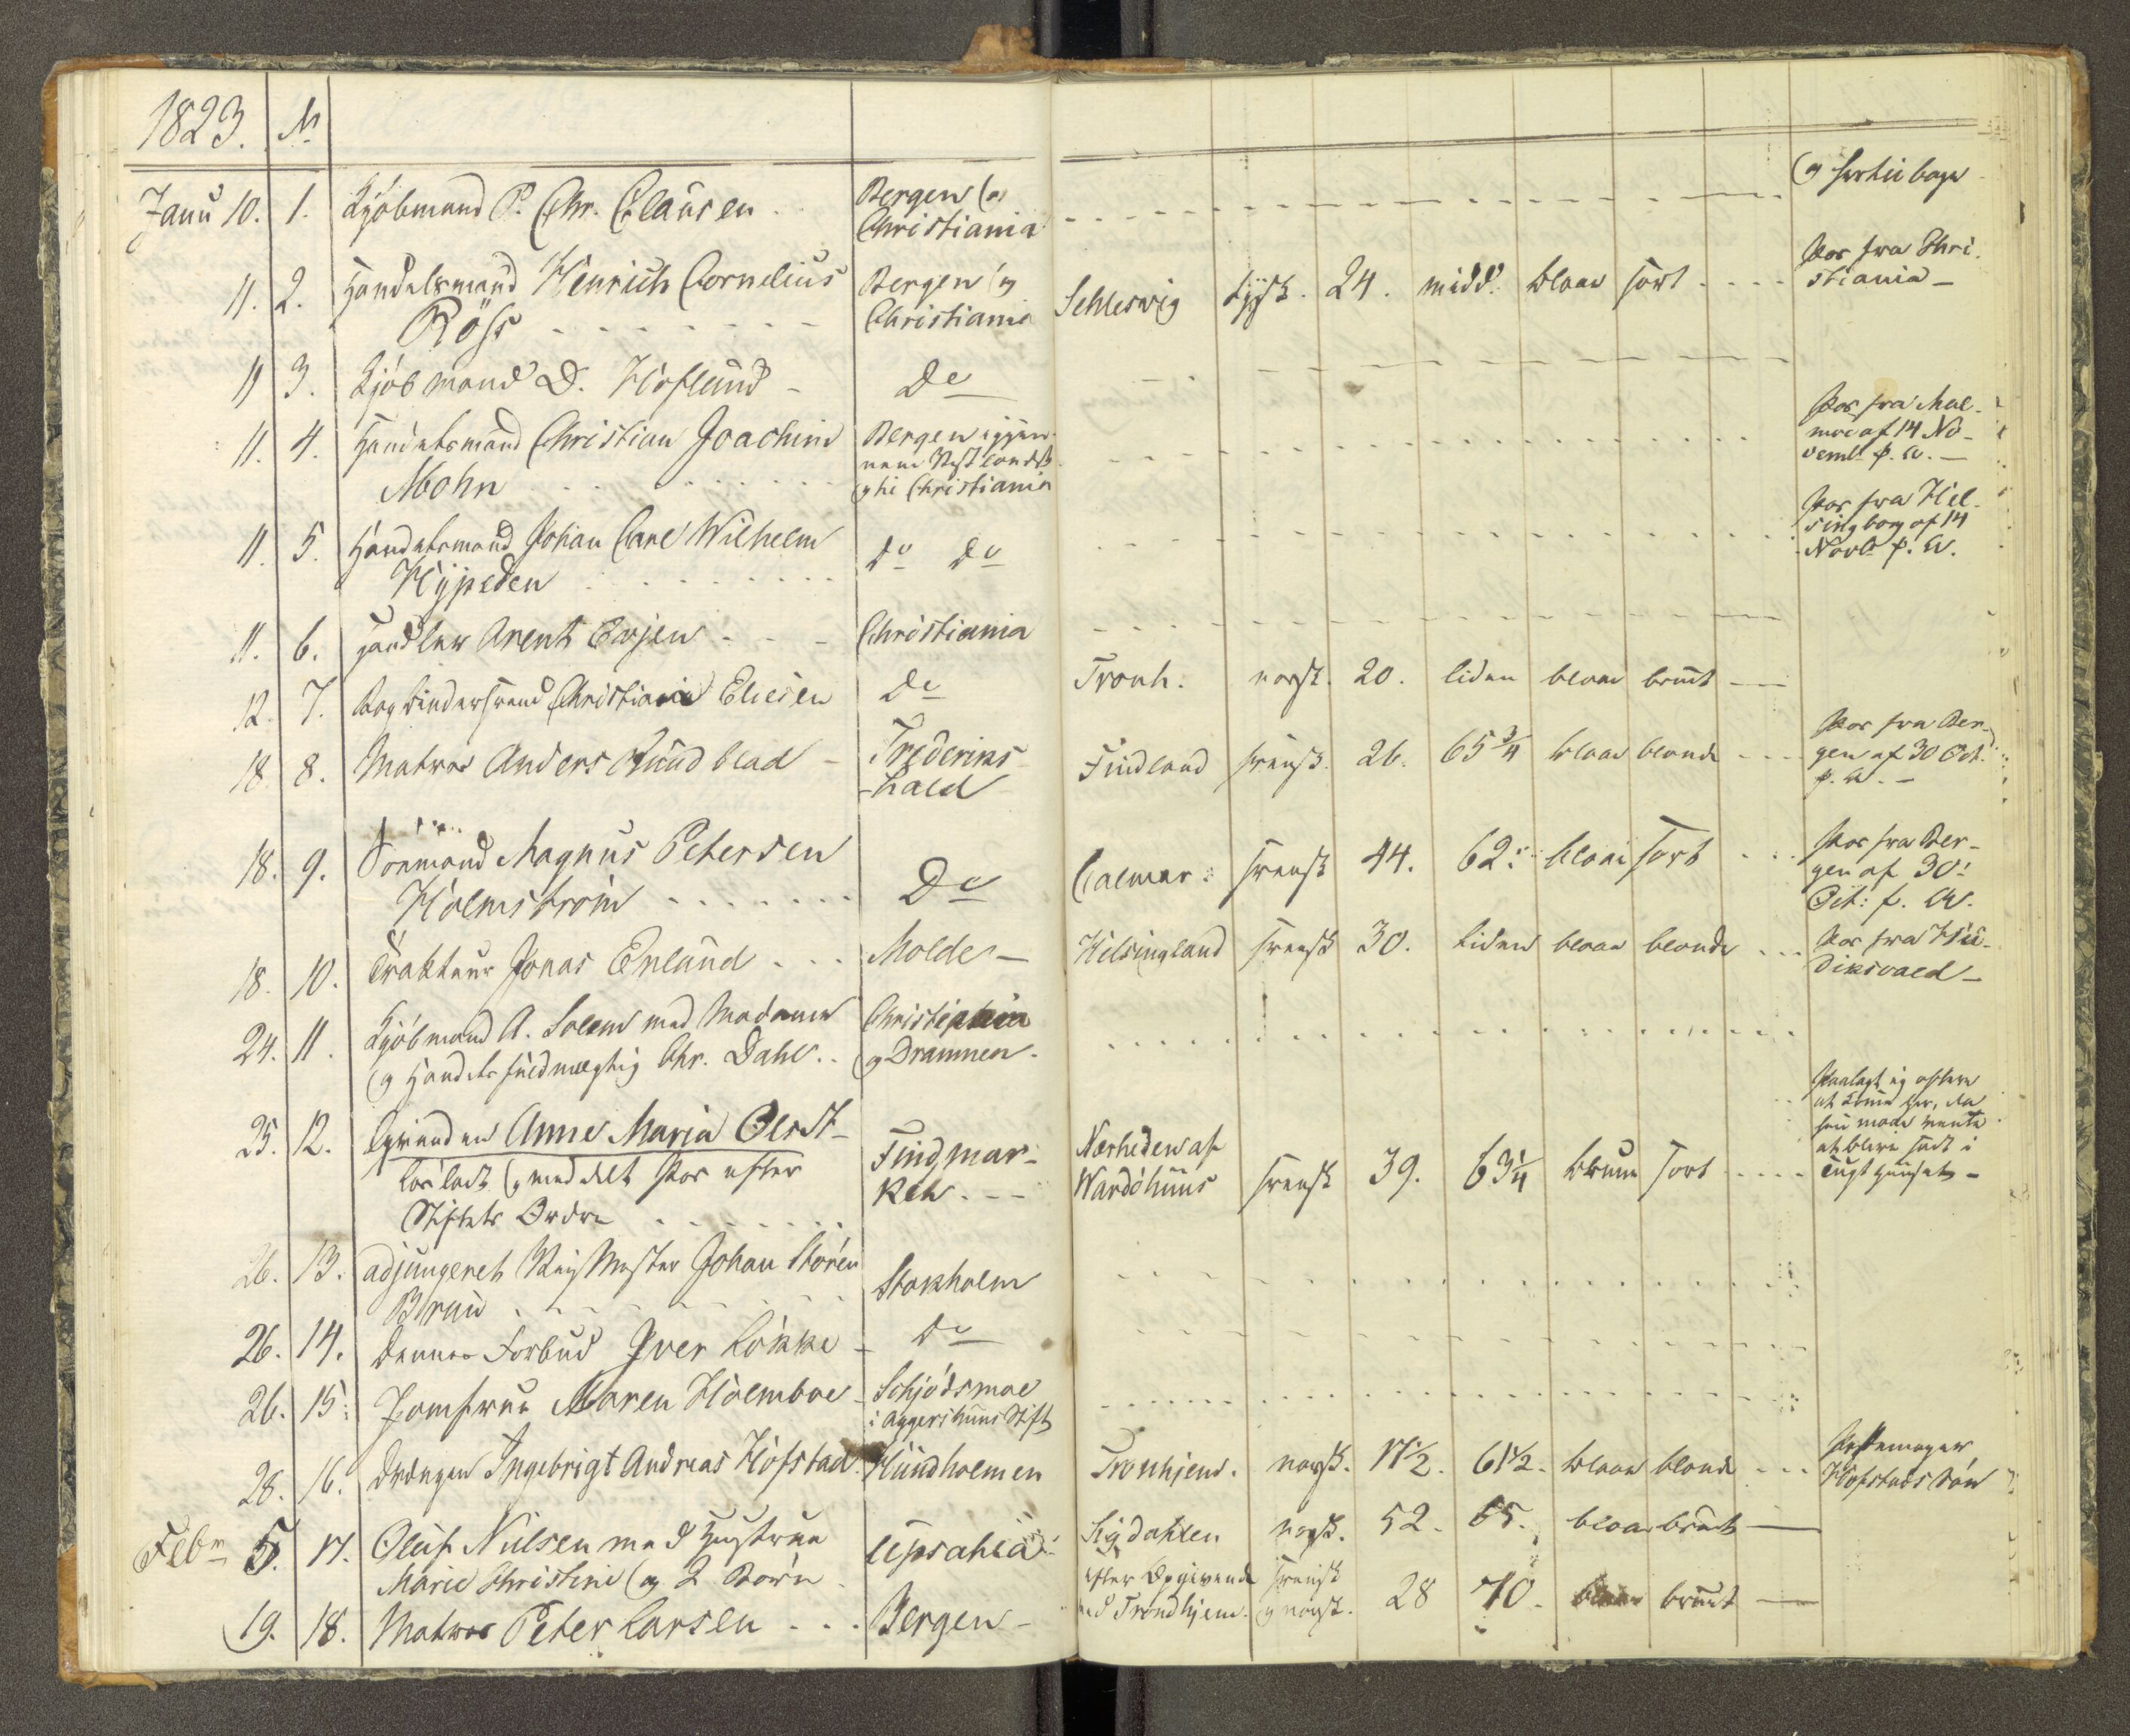 1823. No
Janu 10. 1. Kjöbmand P. Chr. Clausen Bergen og Christiania og her tilbage
11. 2. Handelsmand Henrich Cornelius Röss Bergen og Christiania Schleswig tydsk. 24. midd: blaae sort Pas fra Christiania
11 3. Kjöbmand D. Hoflund Do
11. 4. Handelsmand Christian Joachim Mohn Bergen igjennem og til Christiania Pas fra Malmoe af 14 Novemb. p. A.
11. 5. Handelsmand Johan Carl Wilhelm Do Do Pas fra Helsingborg af 14 Novbr p. A.
11. 6. Handler Arent Christiania
12. 7. Bogbindersvend Christian Eliesen Do Tronh. norsk. 20. liden blaae bruunt
18. 8. Matros Anders Sundblad Frederikshald Findland svensk. 26. 65 3/4 blaae blonde Pas fra Bergen af 30 Oct. p. A.
18. 9. Söemand Magnus Petersen Holmström Do Calmar svensk 44. 62 blaae sort Pas fra Bergen af 30 Oct: p. A.
18. 10. Trakteur Jonas Enlund Molde Helsingland svensk 30. liden blaae blonde Pas fra Hudiksvald
24. 11. Kjöbmand A. Solem med Madame og Handels fuldmægtig Chr. Dahl Christiania og Drammen
25. 12. Qvinden Anne Maria Olsdt lösladt og meddelt Pas efter Stiftets Ordre Findmarken Nærheden af Wardöhuus svensk 39. 63 1/4 bruun sort Paalagt ej oftere at komme her, da hun maae vente at blive sadt i Tugthuuset
26. 13. adjungeret Vejmester Johan Stören Brun Stokholm
26. 14. Dennes Forbud Iver Lökke Do
26. 15. Jomfrue Maren Holmboe i Aggershuus Stift
28. 16. Drengen Ingebrigt Andreas Hofstad Hundholmen Tronhjem. norsk. 17 1/2. 61 1/2. blaae blond Hofstads Sön
Febr 5. 17. Oluf Nielsen med Hustrue Marie Christine og 2 Börn Upsahla Sigdahlen norsk. 52. 65. blaae bruunt
19. 18. Matros Peter Larsen Bergen efter Opgivende ved Trondhjem. svensk og norsk. 28 70. blaae bruunt